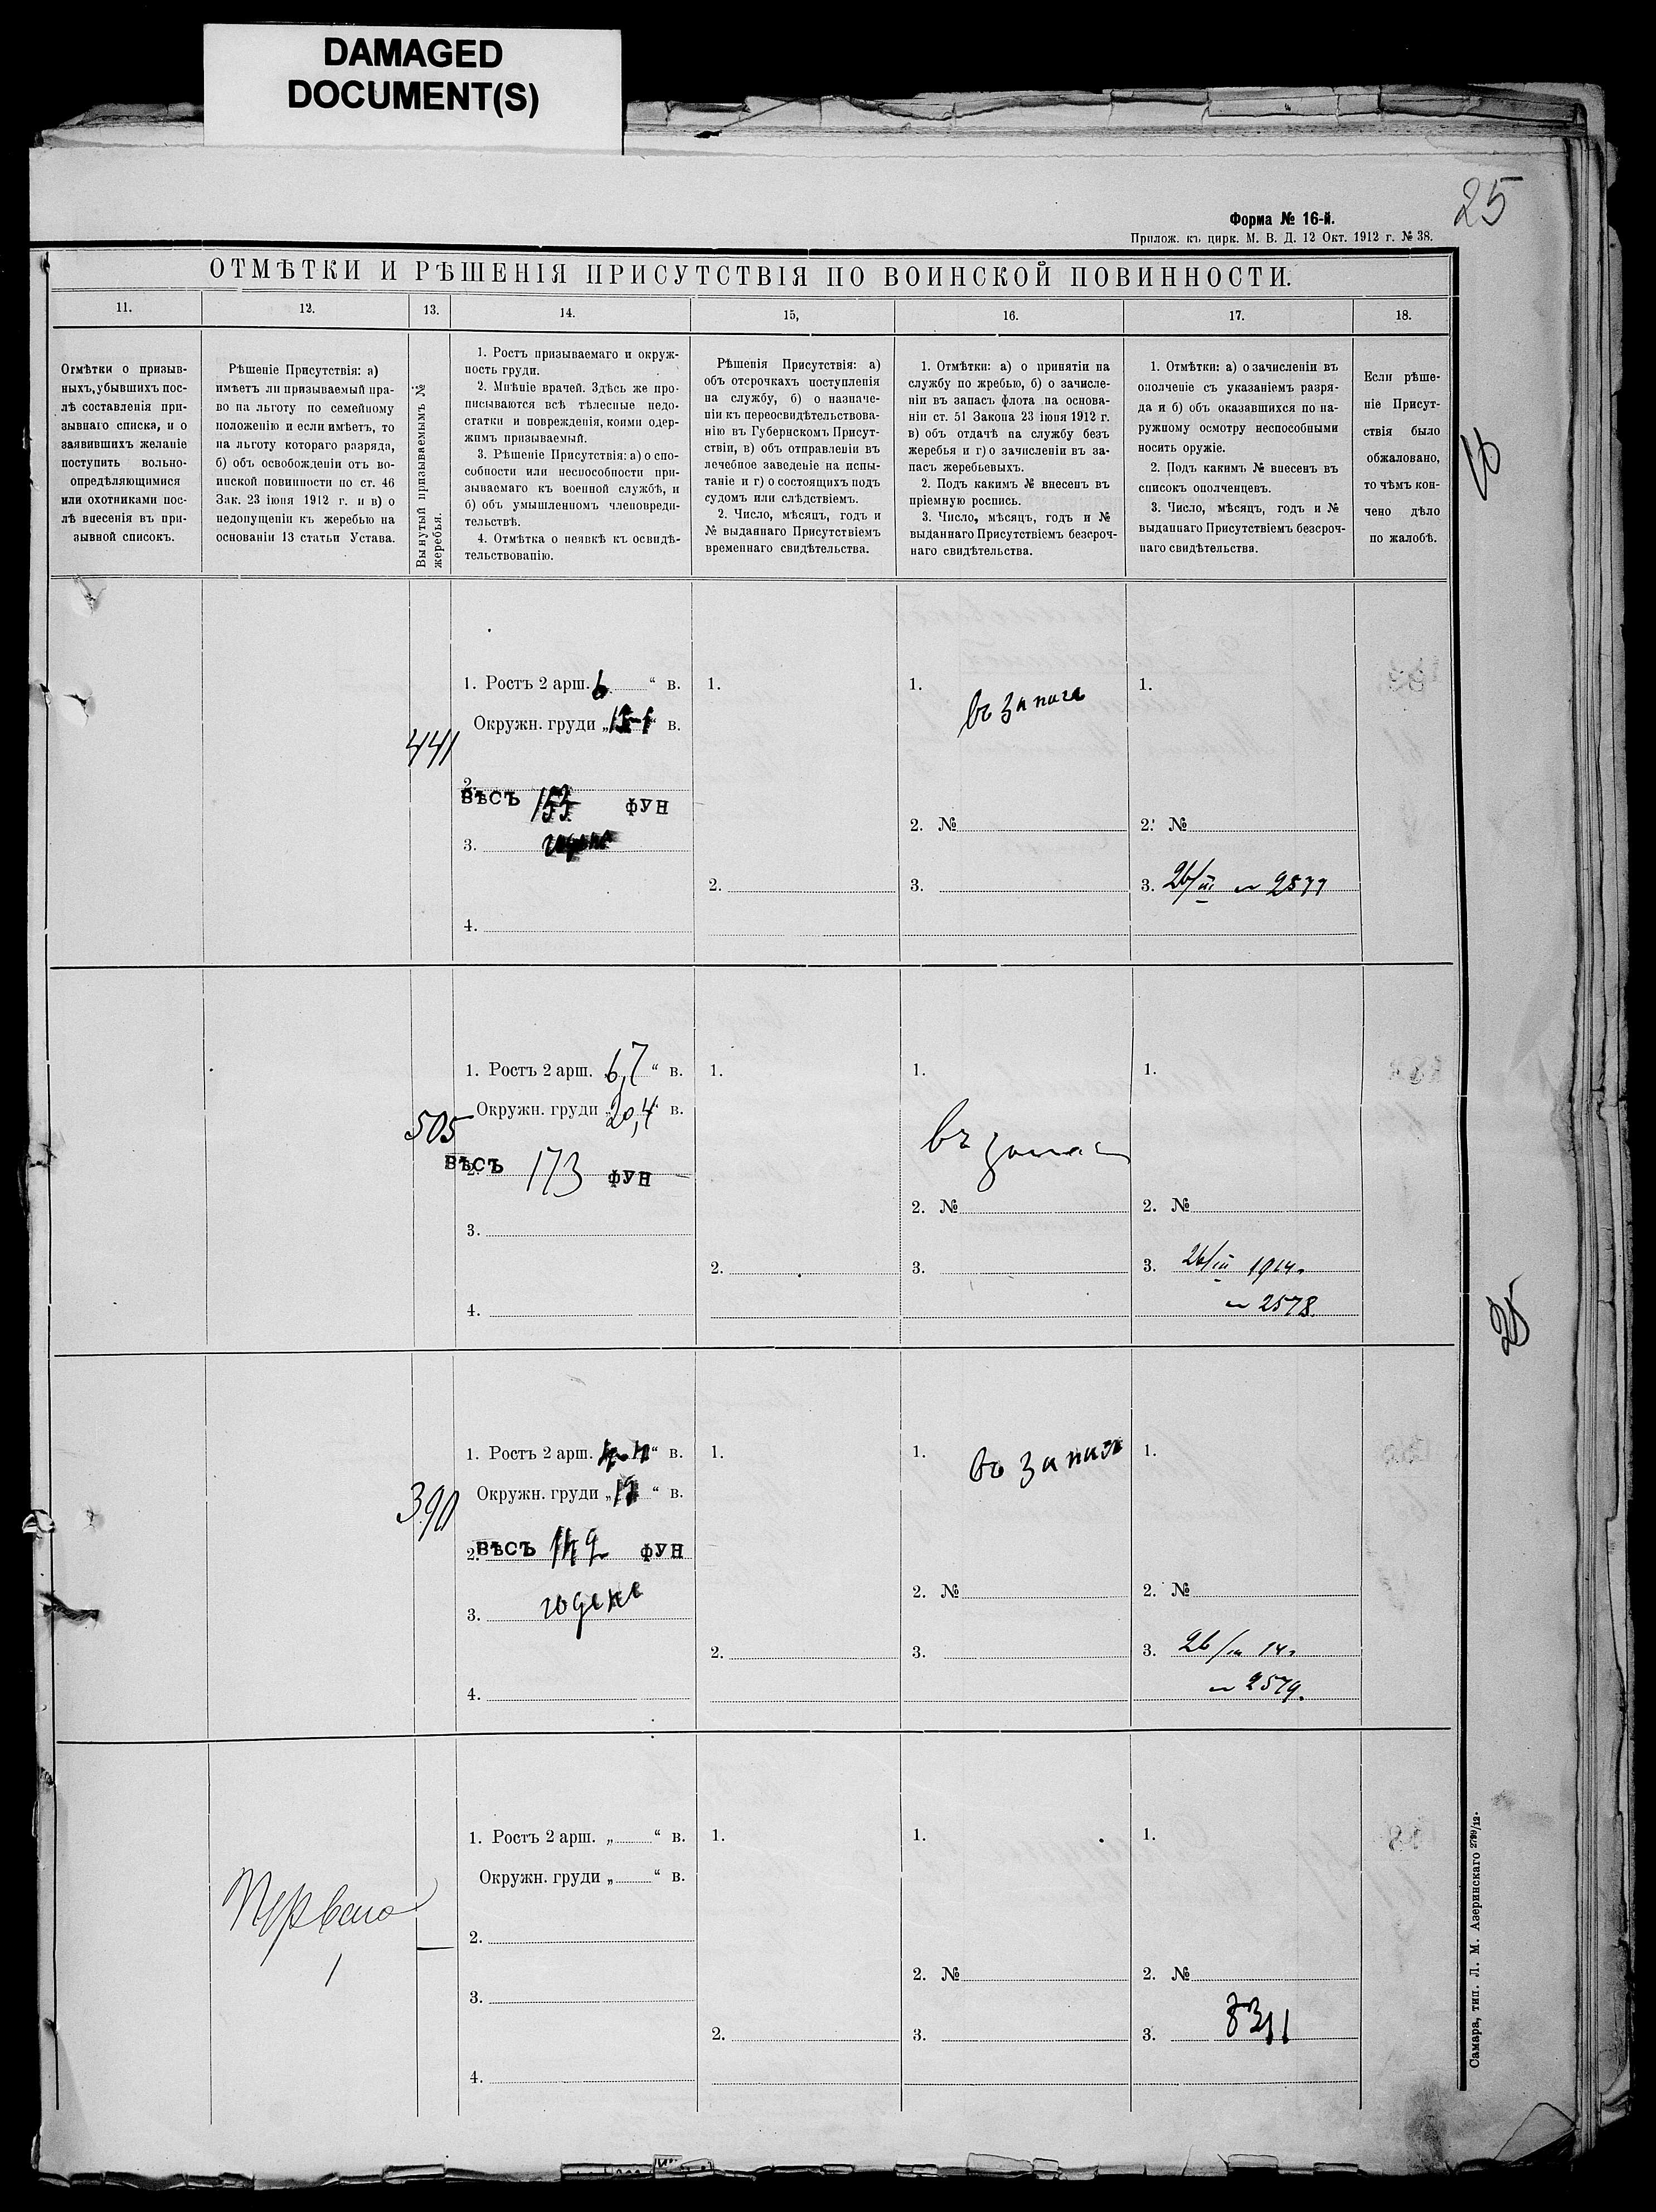 DAMAGED
DOCUMENT(S)
25
Форма № 16-й.
Прилож. къ цирк. М. В. Д. 12 Окт. 1912 г. № 38.
ОТМѢТКИ И РѢШЕНІЯ ПРИСУТСТВІЯ ПО ВОИНСКОЙ ПОВИННОСТИ.
11.
12.
13.
14.
15,
16.
17.
18.
Отмѣтки о призыв-
ныхъ, убывшихъ пос-
лѣ составленія при-
зывнаго списка, и о
заявившихъ желаніе
поступить вольно-
опредѣляющимися
или охотниками пос-
лѣ внесенія въ при-
зывной списокъ.
Рѣшеніе Присутствія: а)
имѣетъ ли призываемый пра-
во на льготу по семейному
положенію и если имѣетъ, то
на льготу котораго разряда,
б) объ освобожденіи отъ во-
инской повинности по ст. 46
Зак. 23 іюня 1912 г. и в) о
недопущеніи къ жеребью на
основаніи 13 статьи Устава.
Вынутый призываемымъ №
жеребья.
1. Ростъ призываемаго и окруж-
ность груди.
2. Мнѣніе врачей. Здѣсь же про-
писываются всѣ тѣлесные недо-
статки и поврежденія, коими одер-
жимъ призываемый.
3. Рѣшеніе Присутствія: а) о спо-
собности или неспособности при-
зываемаго къ военной службѣ, и
б) объ умышленномъ членовреди-
тельствѣ.
4. Отмѣтка о неявкѣ къ освидѣ-
тельствованію.
Рѣшенія Присутствія: а)
объ отсрочкахъ поступленія
на службу, б) о назначе-
ніи къ переосвидѣтельствова-
нію въ Губернскомъ Присут-
ствіи, в) объ отправленіи въ
лечебное заведеніе на испы-
таніе и г) о состоящихъ подъ
судомъ или слѣдствіемъ.
2. Число, мѣсяцъ, годъ и
№ выданнаго Присутствіемъ
временнаго свидѣтельства.
1. Отмѣтки: а) о принятіи на
службу по жребью, б) о зачисле-
ніи въ запасъ флота на основа-
ніи ст. 51 Закона 23 іюня 1912 г.
в) объ отдачѣ на службу безъ
жеребья и г) о зачисленіи въ за-
пасъ жеребьевыхъ.
2. Подъ какимъ № внесенъ въ
пріемную роспись.
3. Число, мѣсяцъ, годъ и №
выданнаго Присутствіемъ безсроч-
наго свидѣтельства.
1. Отмѣтки: а) о зачисленіи въ
ополченіе съ указаніемъ разря-
да и б) объ оказавшихся по на-
ружному осмотру неспособными
носить оружіе.
2. Подъ какимъ № внесенъ въ
списокъ ополченцевъ.
3. Число, мѣсяцъ, годъ и №
выданнаго Присутствіемъ безсроч-
наго свидѣтельства.
Если рѣше-
ніе Присут-
ствія было
обжаловано,
то чѣмъ кон-
чено дѣло
по жалобѣ.
441
1. Ростъ 2 арш. 6 “ в.
Окружн. груди „ “ в.
2.
ВѢСЪ 153 ФУН
3.
4.
1.
2.
1. въ запасъ
2. №
3.
1.
2. №
3. 26/III № 2577
505
1. Ростъ 2 арш. 6,7 “ в.
Окружн. груди „ 20,4 “ в.
2. ВѢСЪ 173 ФУН
3.
4.
1.
2.
1. въ запас
2. №
3.
1.
2. №
3. 26/III 1914 г.
№ 2578.
390
1. Ростъ 2 арш. “ в.
Окружн. груди „ 19 “ в.
2. ВѢСЪ 149 ФУН
3. годенъ
4.
1.
2.
1. въ запасъ
2. №
3.
1.
2. №
3. 26/III 14 г.
№ 2579.
Перваго
1
1. Ростъ 2 арш. „ “ в.
Окружн. груди „ “ в.
2.
3.
4.
1.
2.
1.
2. №
3.
1.
2. №
3. 8311
25
Самара, тип. Л. М. Азеринскаго 2799/12.